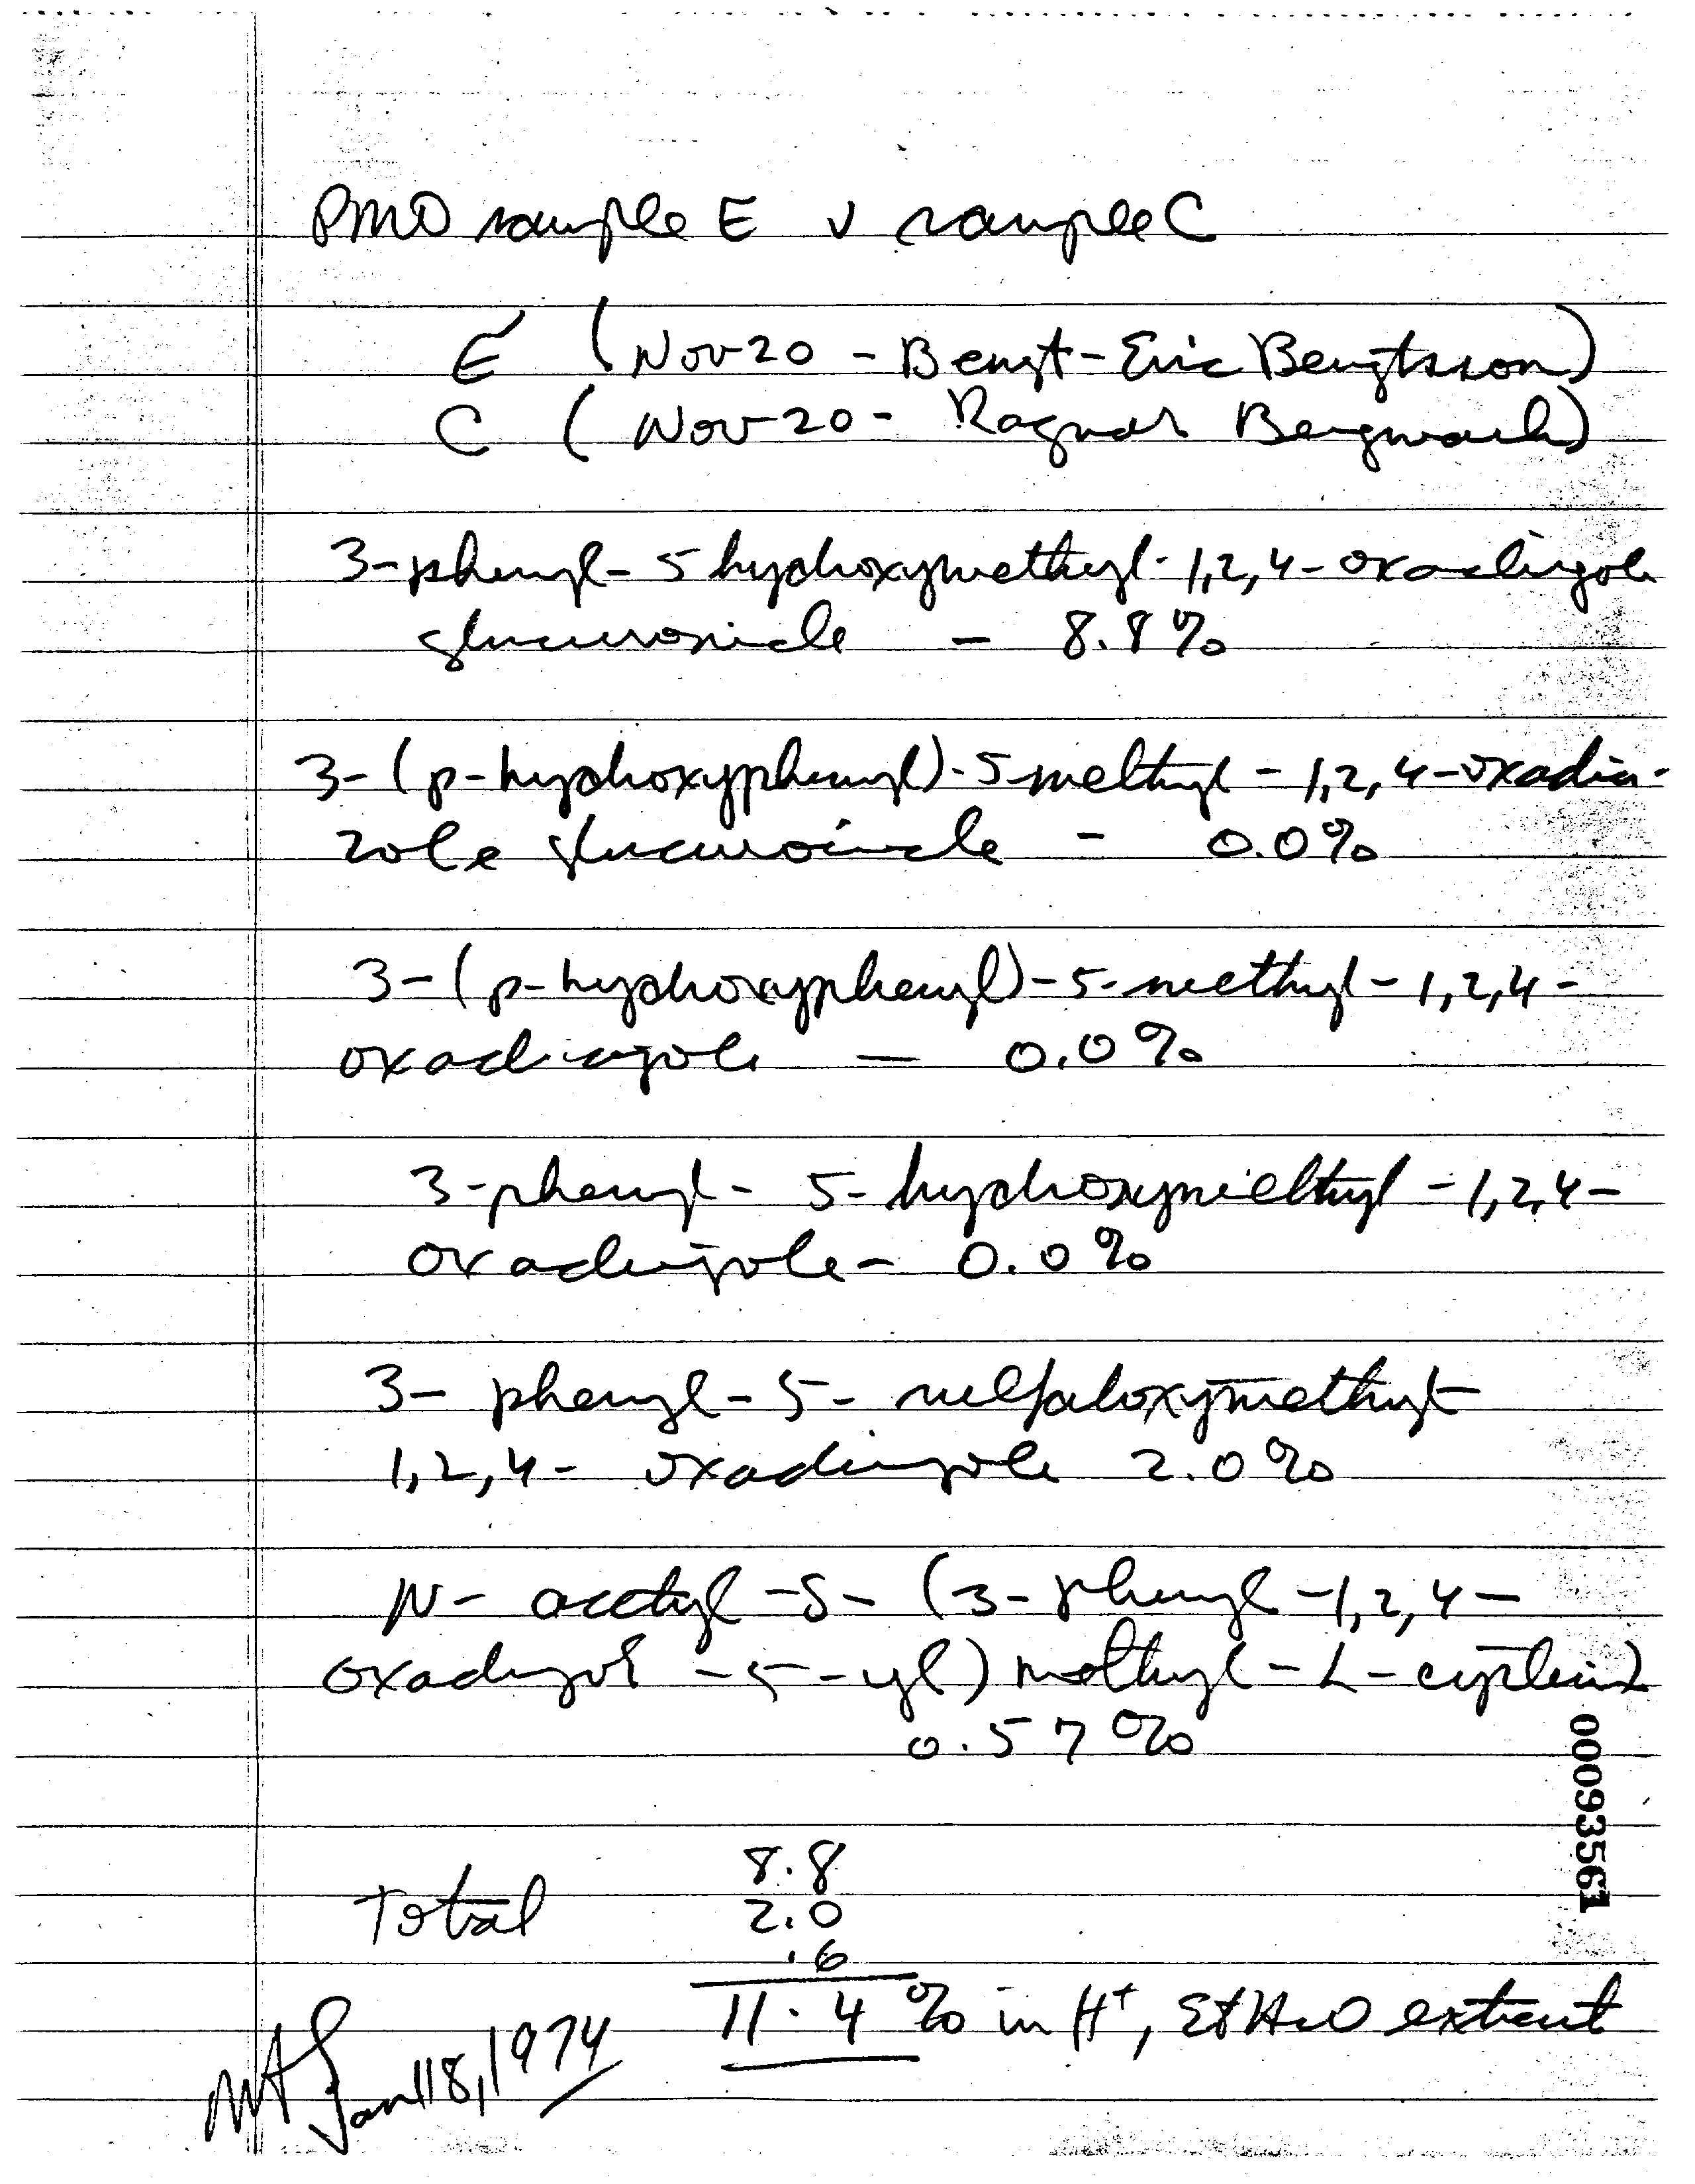 PMO sample E v sample C
E (Nov 20 - Bengt-Eric Bengtsson)
C (Nov 20 - Ragnar
3-phenyl-5 hydroxymethyl-1,2,4-oxadiazole
glucuronide - 8.8%
3-(p-hydroxyphenyl)-5-methyl-1,2,4-oxadia-
zole glucuronide - 0.0%
3-(p-hydroxyphenyl)-5-methyl-1,2,4-
oxadiazole - 0.0%
3-phenyl-5-hydroxymethyl-1,2,4-
oxadiazole - 0.0%
3-phenyl-5-sulfatoxymethyl-
1,2,4-oxadiazole 2.0%
N-acetyl-S-(3-phenyl-1,2,4-
oxadiazol-5-yl)methyl-L-cysteine
0.57%
00093561
8.8
Total 2.0
.6
11.4 % in H+, extract
Jan 18, 1974